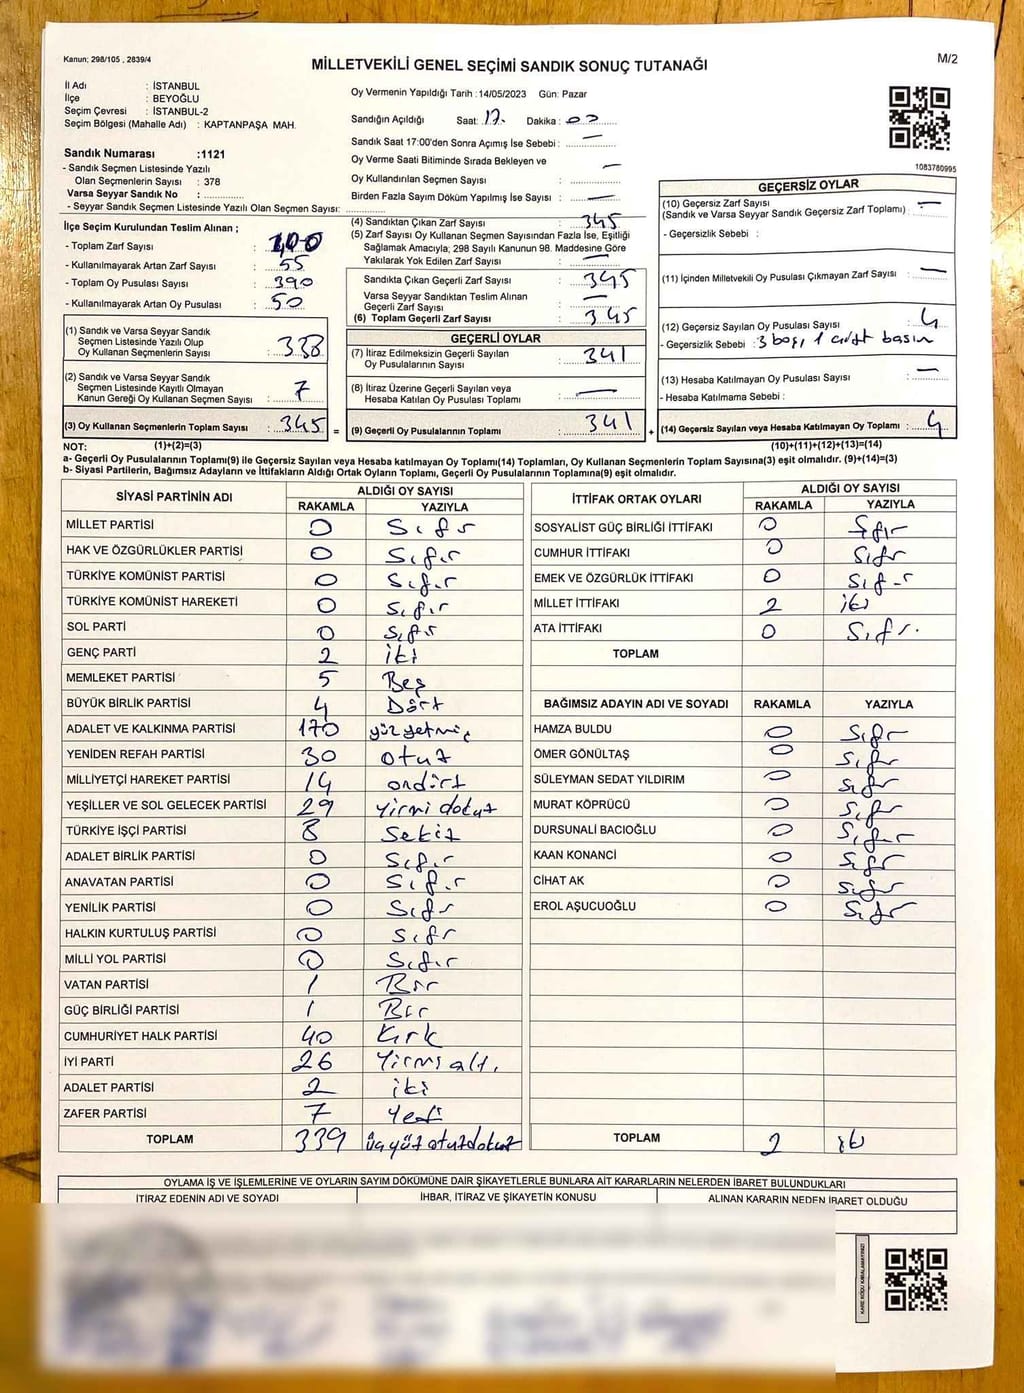 Kanun; 298/105 , 2839/4
M/2
MİLLETVEKİLİ GENEL SEÇİMİ SANDIK SONUÇ TUTANAĞI
İl Adı : İSTANBUL
İlçe : BEYOĞLU
Seçim Çevresi : İSTANBUL-2
Seçim Bölgesi (Mahalle Adı) : KAPTANPAŞA MAH.
Sandık Numarası :1121
- Sandık Seçmen Listesinde Yazılı
Olan Seçmenlerin Sayısı : 378
Varsa Seyyar Sandık No :
- Seyyar Sandık Seçmen Listesinde Yazılı Olan Seçmen Sayısı:
Oy Vermenin Yapıldığı Tarih :14/05/2023 Gün: Pazar
Sandığın Açıldığı Saat: 17 Dakika : 00
Sandık Saat 17:00'den Sonra Açımış İse Sebebi : —
Oy Verme Saati Bitiminde Sırada Bekleyen ve
Oy Kullandırılan Seçmen Sayısı : —
Birden Fazla Sayım Döküm Yapılmış İse Sayısı : —
1083780995
İlçe Seçim Kurulundan Teslim Alınan ;
- Toplam Zarf Sayısı : 400
- Kullanılmayarak Artan Zarf Sayısı : 55
- Toplam Oy Pusulası Sayısı : 390
- Kullanılmayarak Artan Oy Pusulası : 50
(1) Sandık ve Varsa Seyyar Sandık
Seçmen Listesinde Yazılı Olup
Oy Kullanan Seçmenlerin Sayısı : 338
(2) Sandık ve Varsa Seyyar Sandık
Seçmen Listesinde Kayıtlı Olmayan
Kanun Gereği Oy Kullanan Seçmen Sayısı : 7
(3) Oy Kullanan Seçmenlerin Toplam Sayısı : 345 =
(4) Sandıktan Çıkan Zarf Sayısı : 345
(5) Zarf Sayısı Oy Kullanan Seçmen Sayısından Fazla İse, Eşitliği
Sağlamak Amacıyla; 298 Sayılı Kanunun 98. Maddesine Göre
Yakılarak Yok Edilen Zarf Sayısı : —
Sandıkta Çıkan Geçerli Zarf Sayısı : 345
Varsa Seyyar Sandıktan Teslim Alınan
Geçerli Zarf Sayısı : —
(6) Toplam Geçerli Zarf Sayısı : 345
GEÇERLİ OYLAR
(7) İtiraz Edilmeksizin Geçerli Sayılan
Oy Pusulalarının Sayısı : 341
(8) İtiraz Üzerine Geçerli Sayılan veya
Hesaba Katılan Oy Pusulası Toplamı : —
(9) Geçerli Oy Pusulalarının Toplamı : 341 +
GEÇERSİZ OYLAR
(10) Geçersiz Zarf Sayısı
(Sandık ve Varsa Seyyar Sandık Geçersiz Zarf Toplamı) : —
- Geçersizlik Sebebi :
(11) İçinden Milletvekili Oy Pusulası Çıkmayan Zarf Sayısı : —
(12) Geçersiz Sayılan Oy Pusulası Sayısı : 4
- Geçersizlik Sebebi : 3 boş, 1
(13) Hesaba Katılmayan Oy Pusulası Sayısı : —
- Hesaba Katılmama Sebebi :
(14) Geçersiz Sayılan veya Hesaba Katılmayan Oy Toplamı : 4
NOT: (1)+(2)=(3) (10)+(11)+(12)+(13)=(14)
a- Geçerli Oy Pusulalarının Toplamı(9) ile Geçersiz Sayılan veya Hesaba katılmayan Oy Toplamı(14) Toplamları, Oy Kullanan Seçmenlerin Toplam Sayısına(3) eşit olmalıdır. (9)+(14)=(3)
b- Siyasi Partilerin, Bağımsız Adayların ve İttifakların Aldığı Ortak Oyların Toplamı, Geçerli Oy Pusulalarının Toplamına(9) eşit olmalıdır.
SİYASİ PARTİNİN ADI ALDIĞI OY SAYISI
RAKAMLA YAZIYLA
MİLLET PARTİSİ 0 Sıfır
HAK VE ÖZGÜRLÜKLER PARTİSİ 0 Sıfır
TÜRKİYE KOMÜNİST PARTİSİ 0 Sıfır
TÜRKİYE KOMÜNİST HAREKETİ 0 Sıfır
SOL PARTİ 0 Sıfır
GENÇ PARTİ 2 iki
MEMLEKET PARTİSİ 5 Beş
BÜYÜK BİRLİK PARTİSİ 4 Dört
ADALET VE KALKINMA PARTİSİ 170 yüzyetmiş
YENİDEN REFAH PARTİSİ 30 otuz
MİLLİYETÇİ HAREKET PARTİSİ 14 ondört
YEŞİLLER VE SOL GELECEK PARTİSİ 29 Yirmi dokuz
TÜRKİYE İŞÇİ PARTİSİ 8 Sekiz
ADALET BİRLİK PARTİSİ 0 Sıfır
ANAVATAN PARTİSİ 0 Sıfır
YENİLİK PARTİSİ 0 Sıfır
HALKIN KURTULUŞ PARTİSİ 0 Sıfır
MİLLİ YOL PARTİSİ 0 Sıfır
VATAN PARTİSİ 1 Bir
GÜÇ BİRLİĞİ PARTİSİ 1 Bir
CUMHURİYET HALK PARTİSİ 40 Kırk
İYİ PARTİ 26 Yirmi altı
ADALET PARTİSİ 2 iki
ZAFER PARTİSİ 7 Yedi
TOPLAM 339 üçyüz otuzdokuz
İTTİFAK ORTAK OYLARI ALDIĞI OY SAYISI
RAKAMLA YAZIYLA
SOSYALİST GÜÇ BİRLİĞİ İTTİFAKI 0 Sıfır
CUMHUR İTTİFAKI 0 Sıfır
EMEK VE ÖZGÜRLÜK İTTİFAKI 0 Sıfır
MİLLET İTTİFAKI 2 iki
ATA İTTİFAKI 0 Sıfır.
TOPLAM
BAĞIMSIZ ADAYIN ADI VE SOYADI RAKAMLA YAZIYLA
HAMZA BULDU 0 Sıfır
ÖMER GÖNÜLTAŞ 0 Sıfır
SÜLEYMAN SEDAT YILDIRIM 0 Sıfır
MURAT KÖPRÜCÜ 0 Sıfır
DURSUNALİ BACIOĞLU 0 Sıfır
KAAN KONANCİ 0 Sıfır
CİHAT AK 0 Sıfır
EROL AŞUCUOĞLU 0 Sıfır
TOPLAM 2 iki
OYLAMA İŞ VE İŞLEMLERİNE VE OYLARIN SAYIM DÖKÜMÜNE DAİR ŞİKAYETLERLE BUNLARA AİT KARARLARIN NELERDEN İBARET BULUNDUKLARI
İTİRAZ EDENİN ADI VE SOYADI İHBAR, İTİRAZ VE ŞİKAYETİN KONUSU ALINAN KARARIN NEDEN İBARET OLDUĞU
KARE KODU KARALAMAYINIZ!